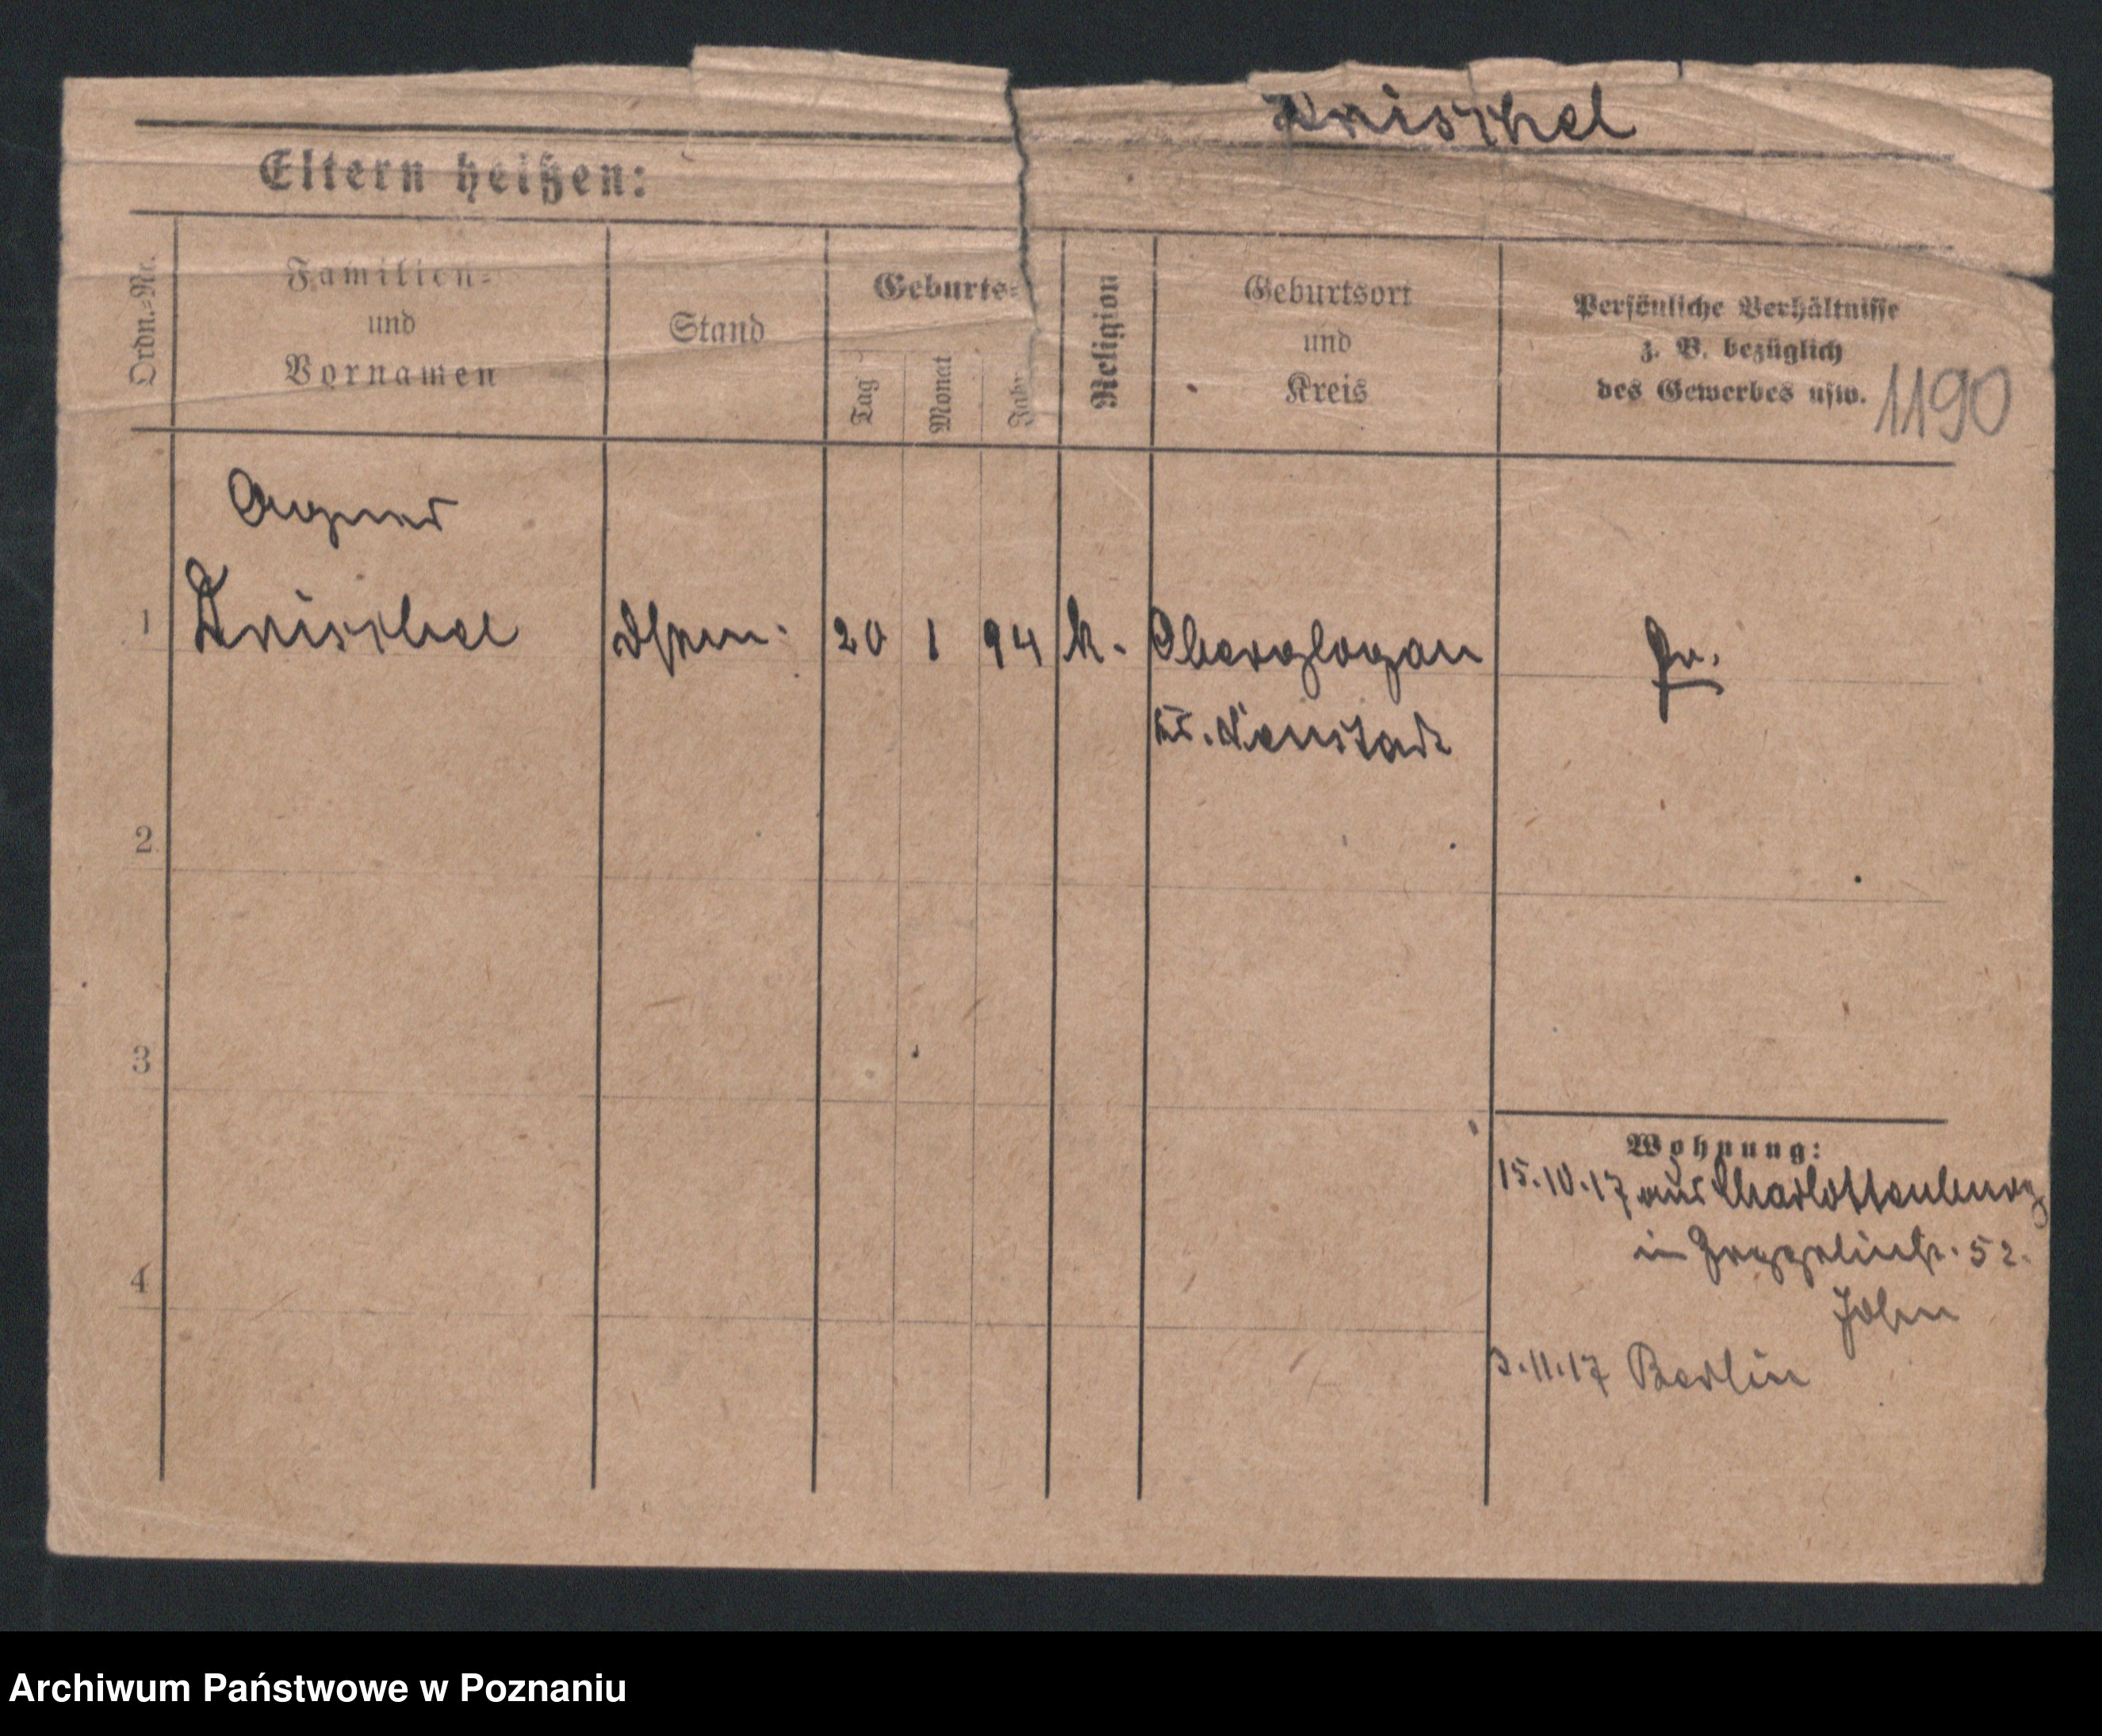 Knischel
Eltern heißen:
Ordn.-Nr.
Familien-
und
Vornamen
Stand
Geburts-
Tag
Monat
Jahr
Religion
Geburtsort
und
Kreis
Persönliche Verhältnisse
z. B. bezüglich
des Gewerbes usw.
1190
Agnes
1 20 1 94 k. Oberglogau Pr.
Kr. Neustadt
2
3
4
Wohnung:
15.10.17 aus Charlottenburg
in 52.
John
3.11.17 Berlin
Archiwum Państwowe w Poznaniu